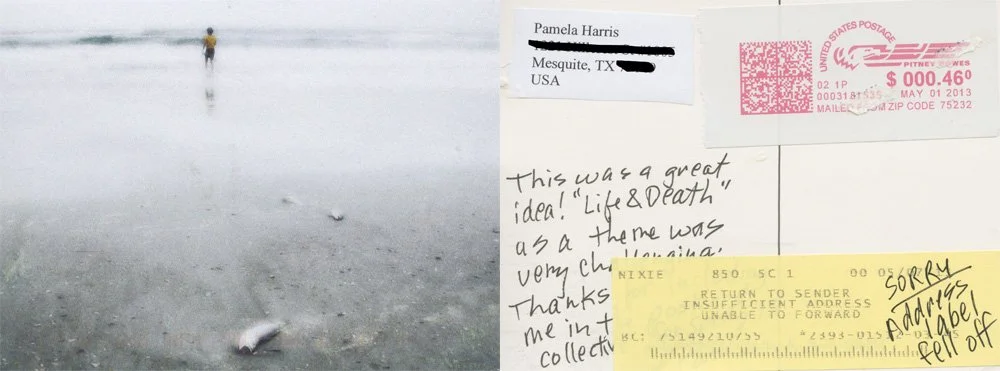 Pamela Harris
Mesquite, TX
USA
UNITED STATES POSTAGE
PITNEY BOWES
02 1P
$ 000.46⁰
MAY 01 2013
MAILED FROM ZIP CODE 75232
This was a great
idea! "Life & Death"
as a theme was
very
Thanks
me in
NIXIE 850 5C 1 00
RETURN TO SENDER
INSUFFICIENT ADDRESS
UNABLE TO FORWARD
BC: 75149210755
SORRY
Address
label
fell off